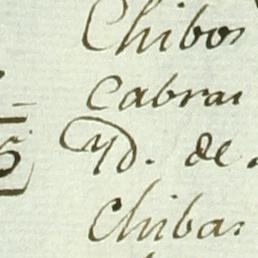 Chibos
Cabras
Yd. de
Chibas